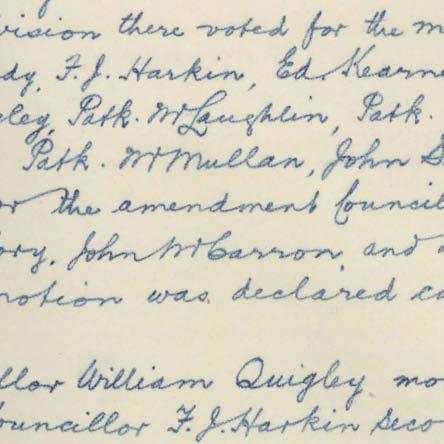 vision there voted for the m
dy, F. J. Harkin, Ed. Kearne
ley, Patk. McLaughlin, Patk.
Patk. McMullan, John S
or the amendment Council
ory, John McCarron, and
motion was declared ca
llor William Quigley mo
ouncillor F. J. Harkin seco